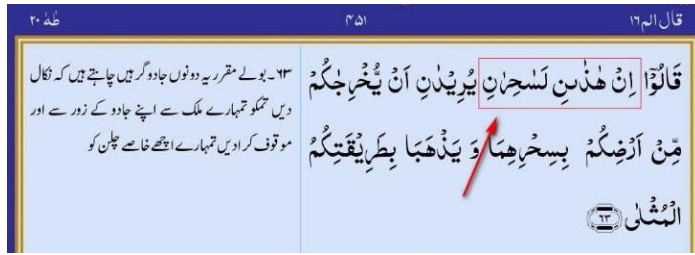 قال الم ١٦
٤٥١
طٰهٰ ٢٠
قَالُوْۤا اِنْ هٰذٰىنِ لَسٰحِرٰنِ یُرِیْدٰنِ اَنْ یُّخْرِجٰكُمْ
مِّنْ اَرْضِكُمْ بِسِحْرِهِمَا وَ یَذْهَبَا بِطَرِیْقَتِكُمُ
الْمُثْلٰی ﴿٦٣﴾
۶۳۔ بولے مقرر یہ دونوں جادوگر ہیں چاہتے ہیں کہ نکال
دیں تمکو تمہارے ملک سے اپنے جادو کے زور سے اور
موقوف کرا دیں تمہارے اچھے خاصے چلن کو